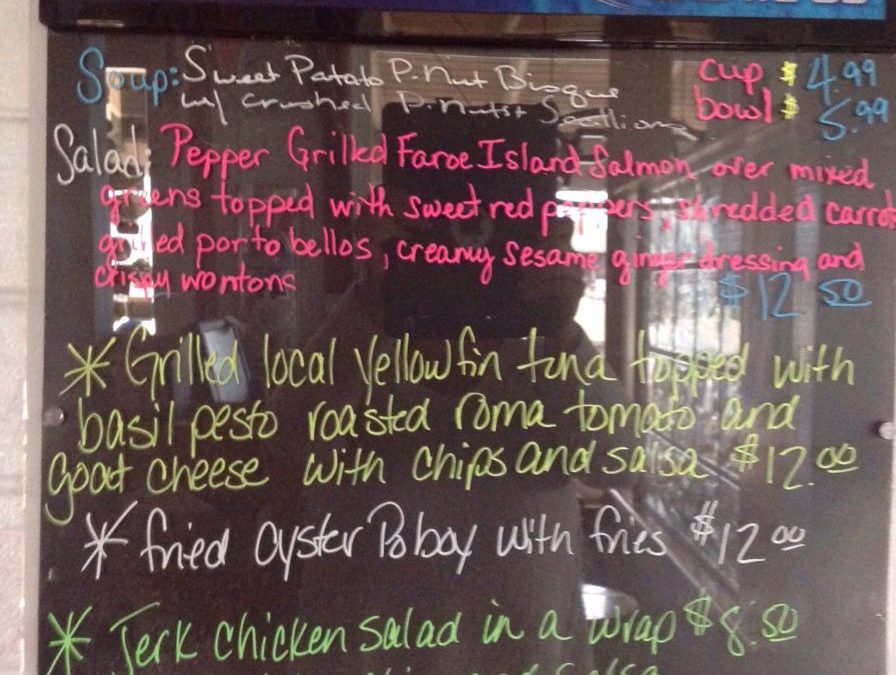 Soup: Sweet Patato P-Nut Bisque cup $ 4.99
w/ crushed P-nuts + Scallions bowl $ 5.99
Salad: Pepper Grilled Faroe Island Salmon over mixed
greens topped with sweet red peppers, shredded carrot
grilled portobellos, creamy sesame ginger dressing and
crispy wontons $12 50
* Grilled local yellowfin tuna topped with
basil pesto roasted roma tomato and
goat cheese with chips and salsa $12.00
* fried oyster Poboy with fries $12 00
* Jerk chicken salad in a wrap $8.50
and salsa